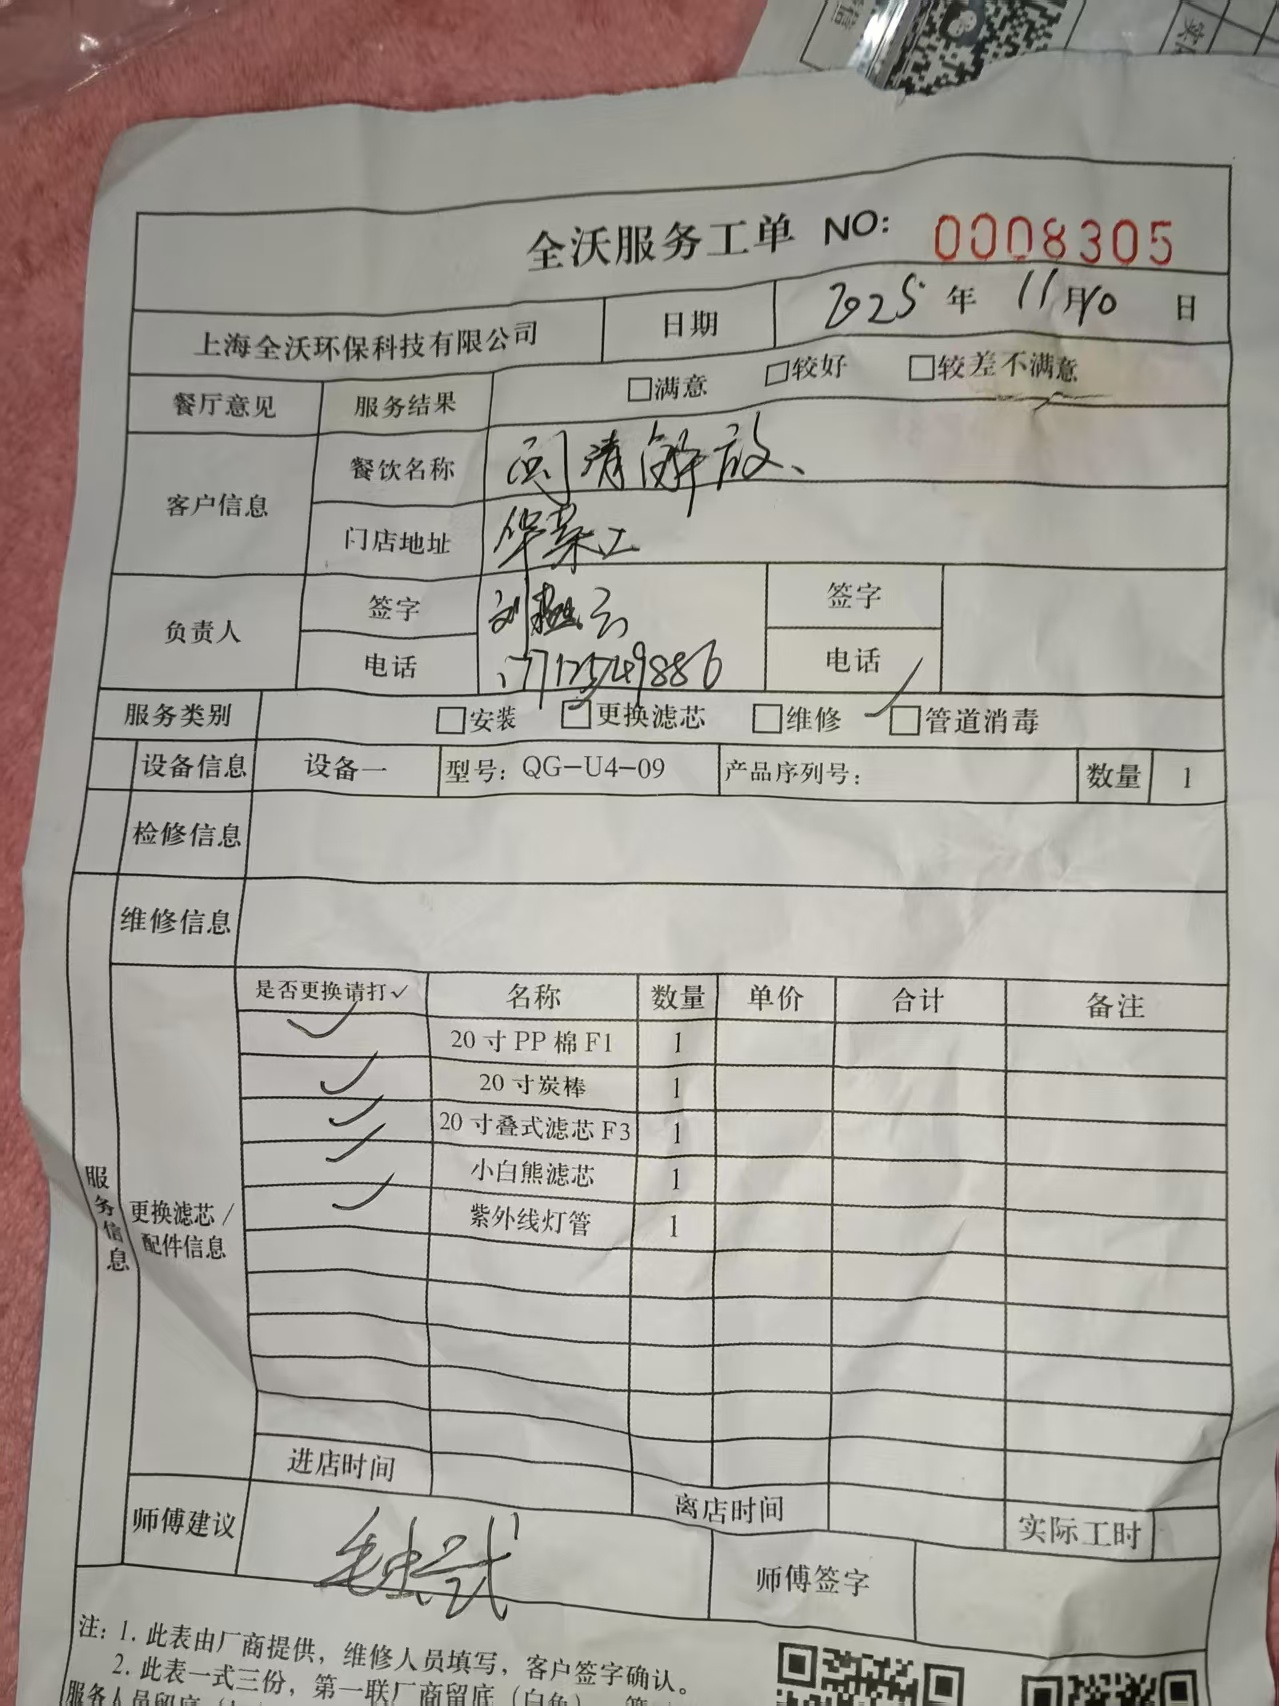 全沃服务工单 NO: 0008305
上海全沃环保科技有限公司 日期 2025年11月10日
餐厅意见 服务结果 □满意 □较好 □较差不满意
客户信息 餐饮名称 闵清解放
门店地址 华荣工
负责人 签字 刘 云 签字
电话 17712549886 电话
服务类别 □安装 □更换滤芯 □维修 ✓□管道消毒
设备信息 设备一 型号: QG-U4-09 产品序列号: 数量 1
检修信息
维修信息
服务信息
更换滤芯/
配件信息
是否更换请打✓ 名称 数量 单价 合计 备注
✓ 20寸PP棉F1 1
✓ 20寸炭棒 1
✓ 20寸叠式滤芯F3 1
✓ 小白熊滤芯 1
✓ 紫外线灯管 1
进店时间 离店时间 实际工时
师傅建议 师傅签字
注: 1. 此表由厂商提供, 维修人员填写, 客户签字确认。
2. 此表一式三份, 第一联厂商留底(白色)
服务人员留底